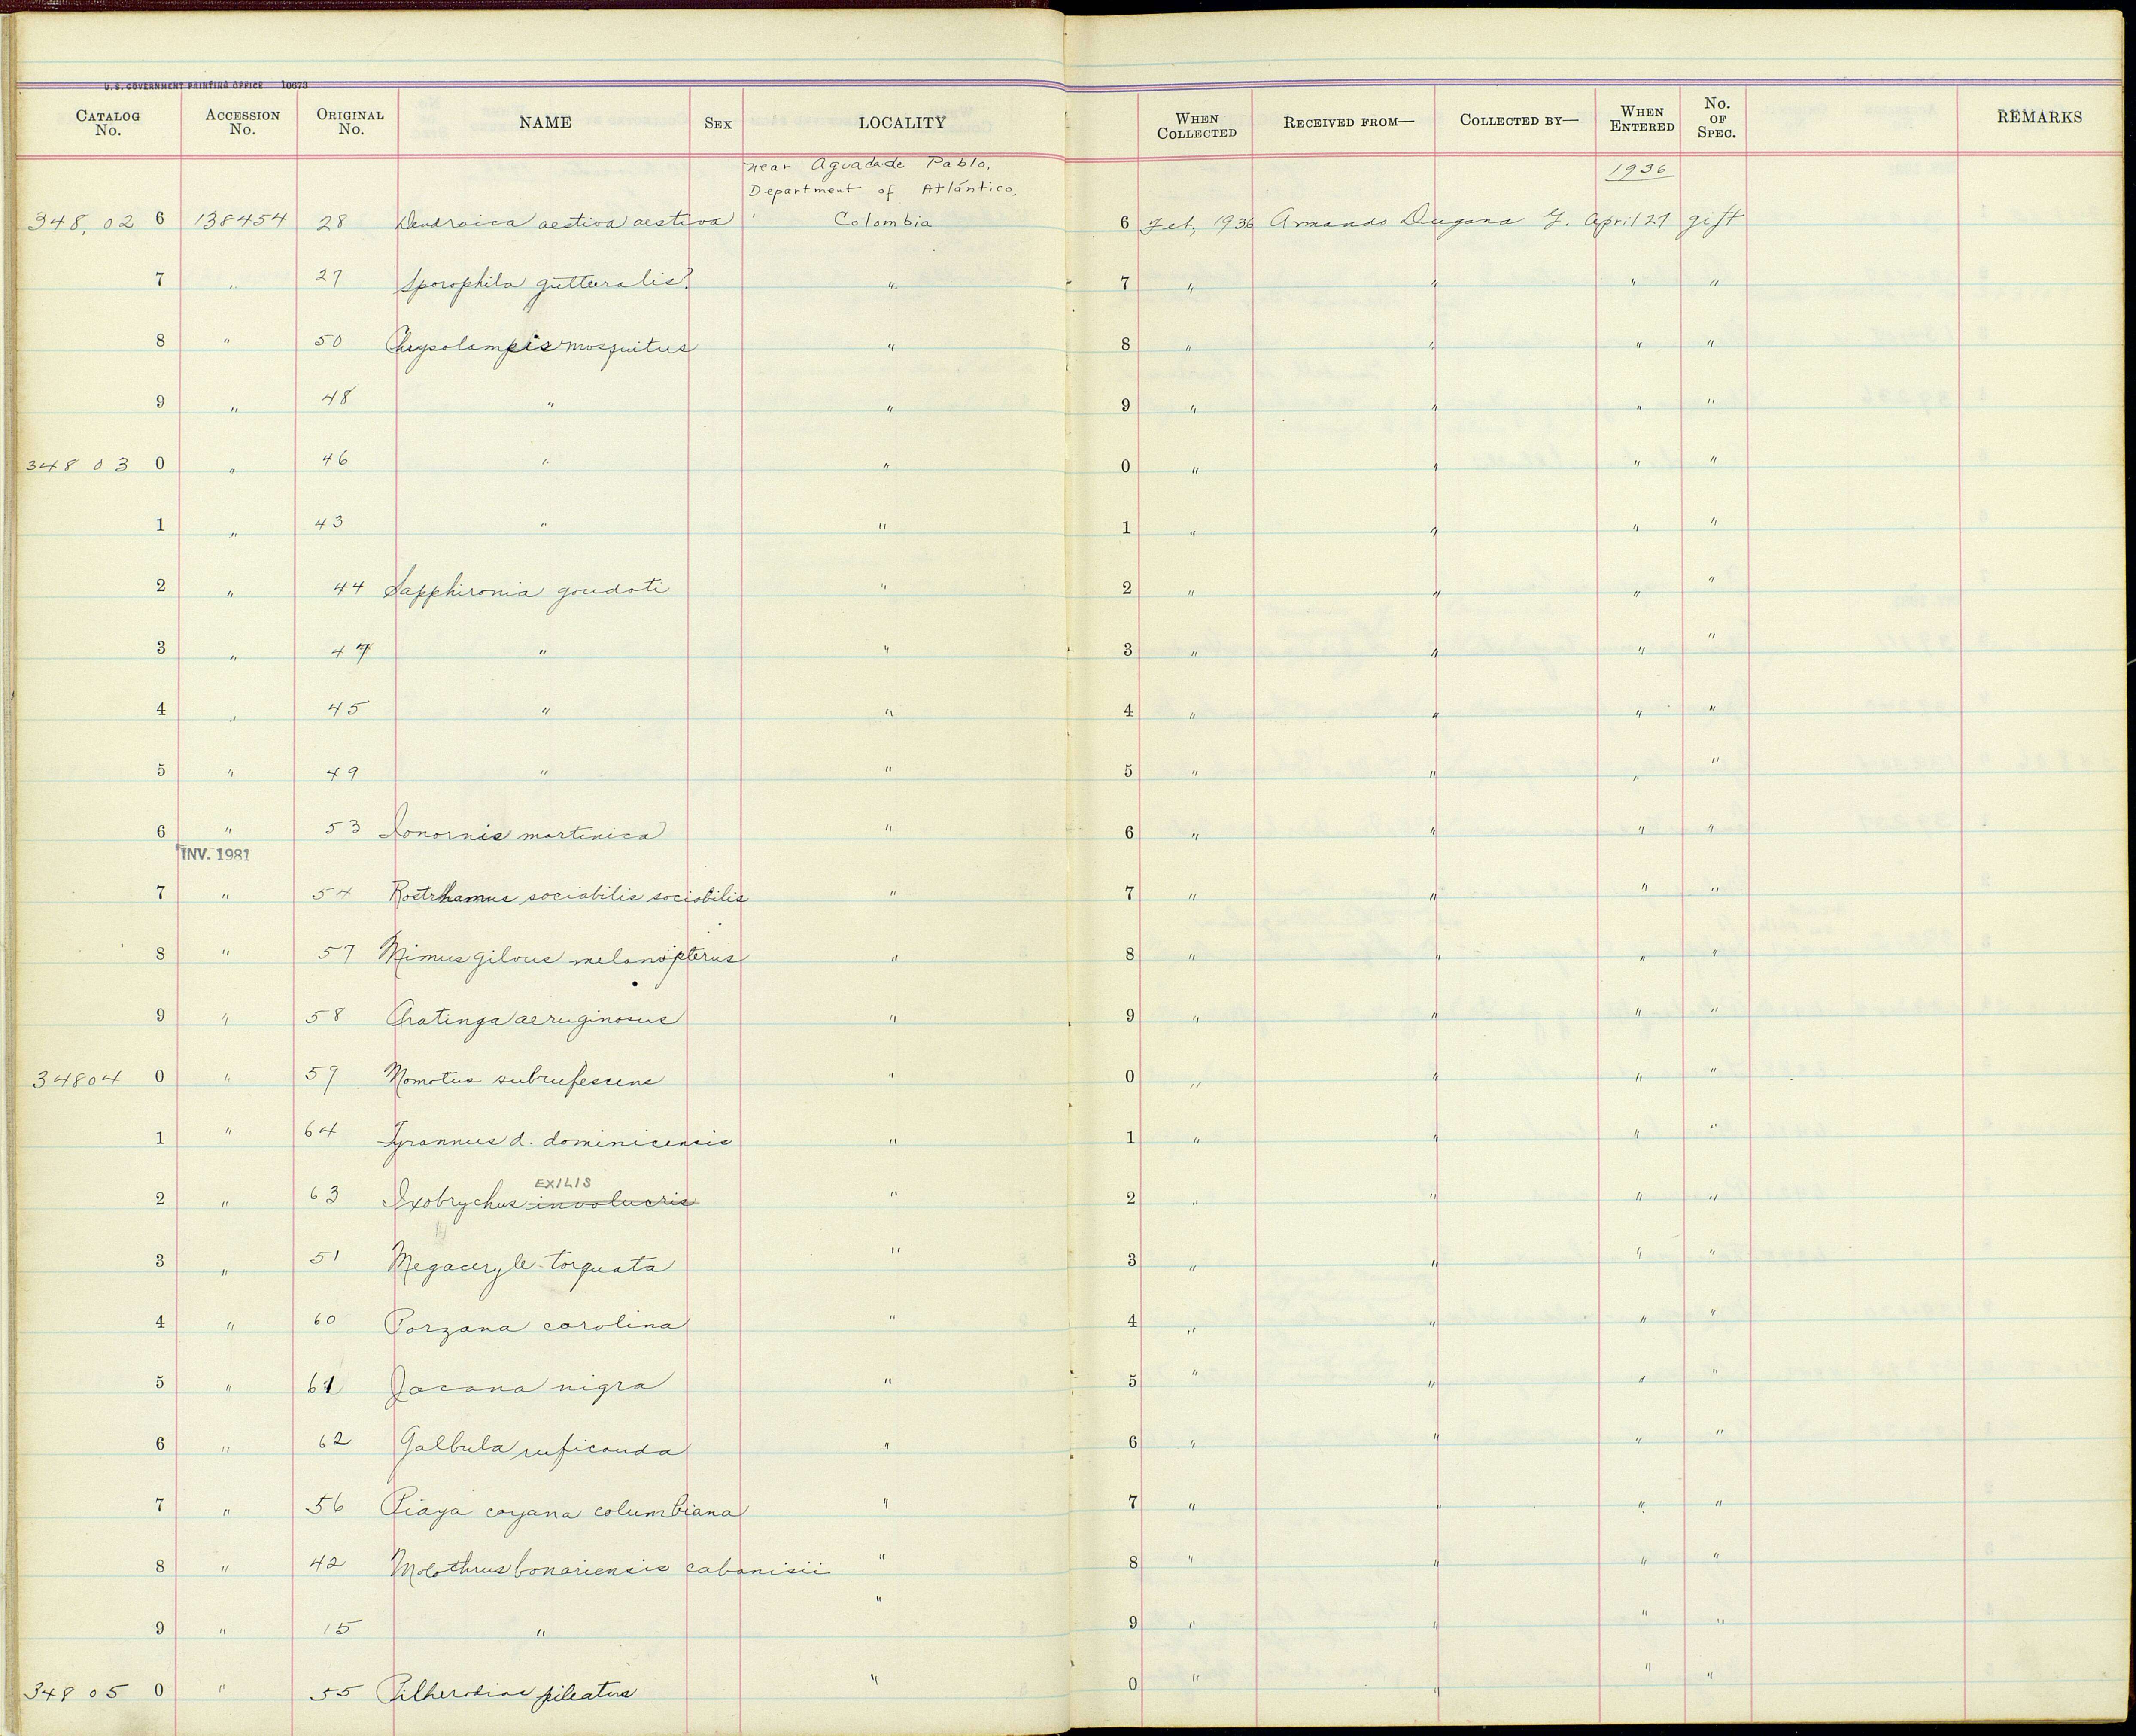 U. S. GOVERNMENT PRINTING OFFICE 10673
CATALOG No. ACCESSION No. ORIGINAL No. NAME SEX LOCALITY WHEN COLLECTED RECEIVED FROM— COLLECTED BY— WHEN ENTERED No. OF SPEC. REMARKS
near Aguada de Pablo,
Department of Atlántico, 1936
348,02 6 138454 28 Dendroica aestiva aestiva Colombia 6 Feb, 1936 Armando Dugand G. April 27 gift
7 " 27 Sporophila gutturalis? " 7 " " " "
8 " 50 Chrysolampis mosquitus " 8 " " " "
9 " 48 " " 9 " " " "
34803 0 " 46 " " 0 " " " "
1 " 43 " " 1 " " " "
2 " 44 Sapphironia goudoti " 2 " " " "
3 " 47 " " 3 " " " "
4 " 45 " " 4 " " " "
5 " 49 " " 5 " " " "
6 " 53 Ionornis martinica " 6 " " " "
INV. 1981
7 " 54 Rostrhamus sociabilis sociabilis " 7 " " " "
8 " 57 Mimus gilvus melanopterus " 8 " " " "
9 " 58 Aratinga aeruginosus " 9 " " " "
34804 0 " 59 Momotus subrufescens " 0 " " " "
1 " 64 Tyrannus d. dominicensis " 1 " " " "
EXILIS
2 " 63 Ixobrychus involucris " 2 " " " "
3 " 51 Megaceryle torquata " 3 " " " "
4 " 60 Porzana carolina " 4 " " " "
5 " 61 Jacana nigra " 5 " " " "
6 " 62 Galbula ruficauda " 6 " " " "
7 " 56 Piaya cayana columbiana " 7 " " " "
8 " 42 Molothrus bonariensis cabanisii " 8 " " " "
9 " 15 " " 9 " " " "
34805 0 " 55 Pilherodias pileatus " 0 " " " "